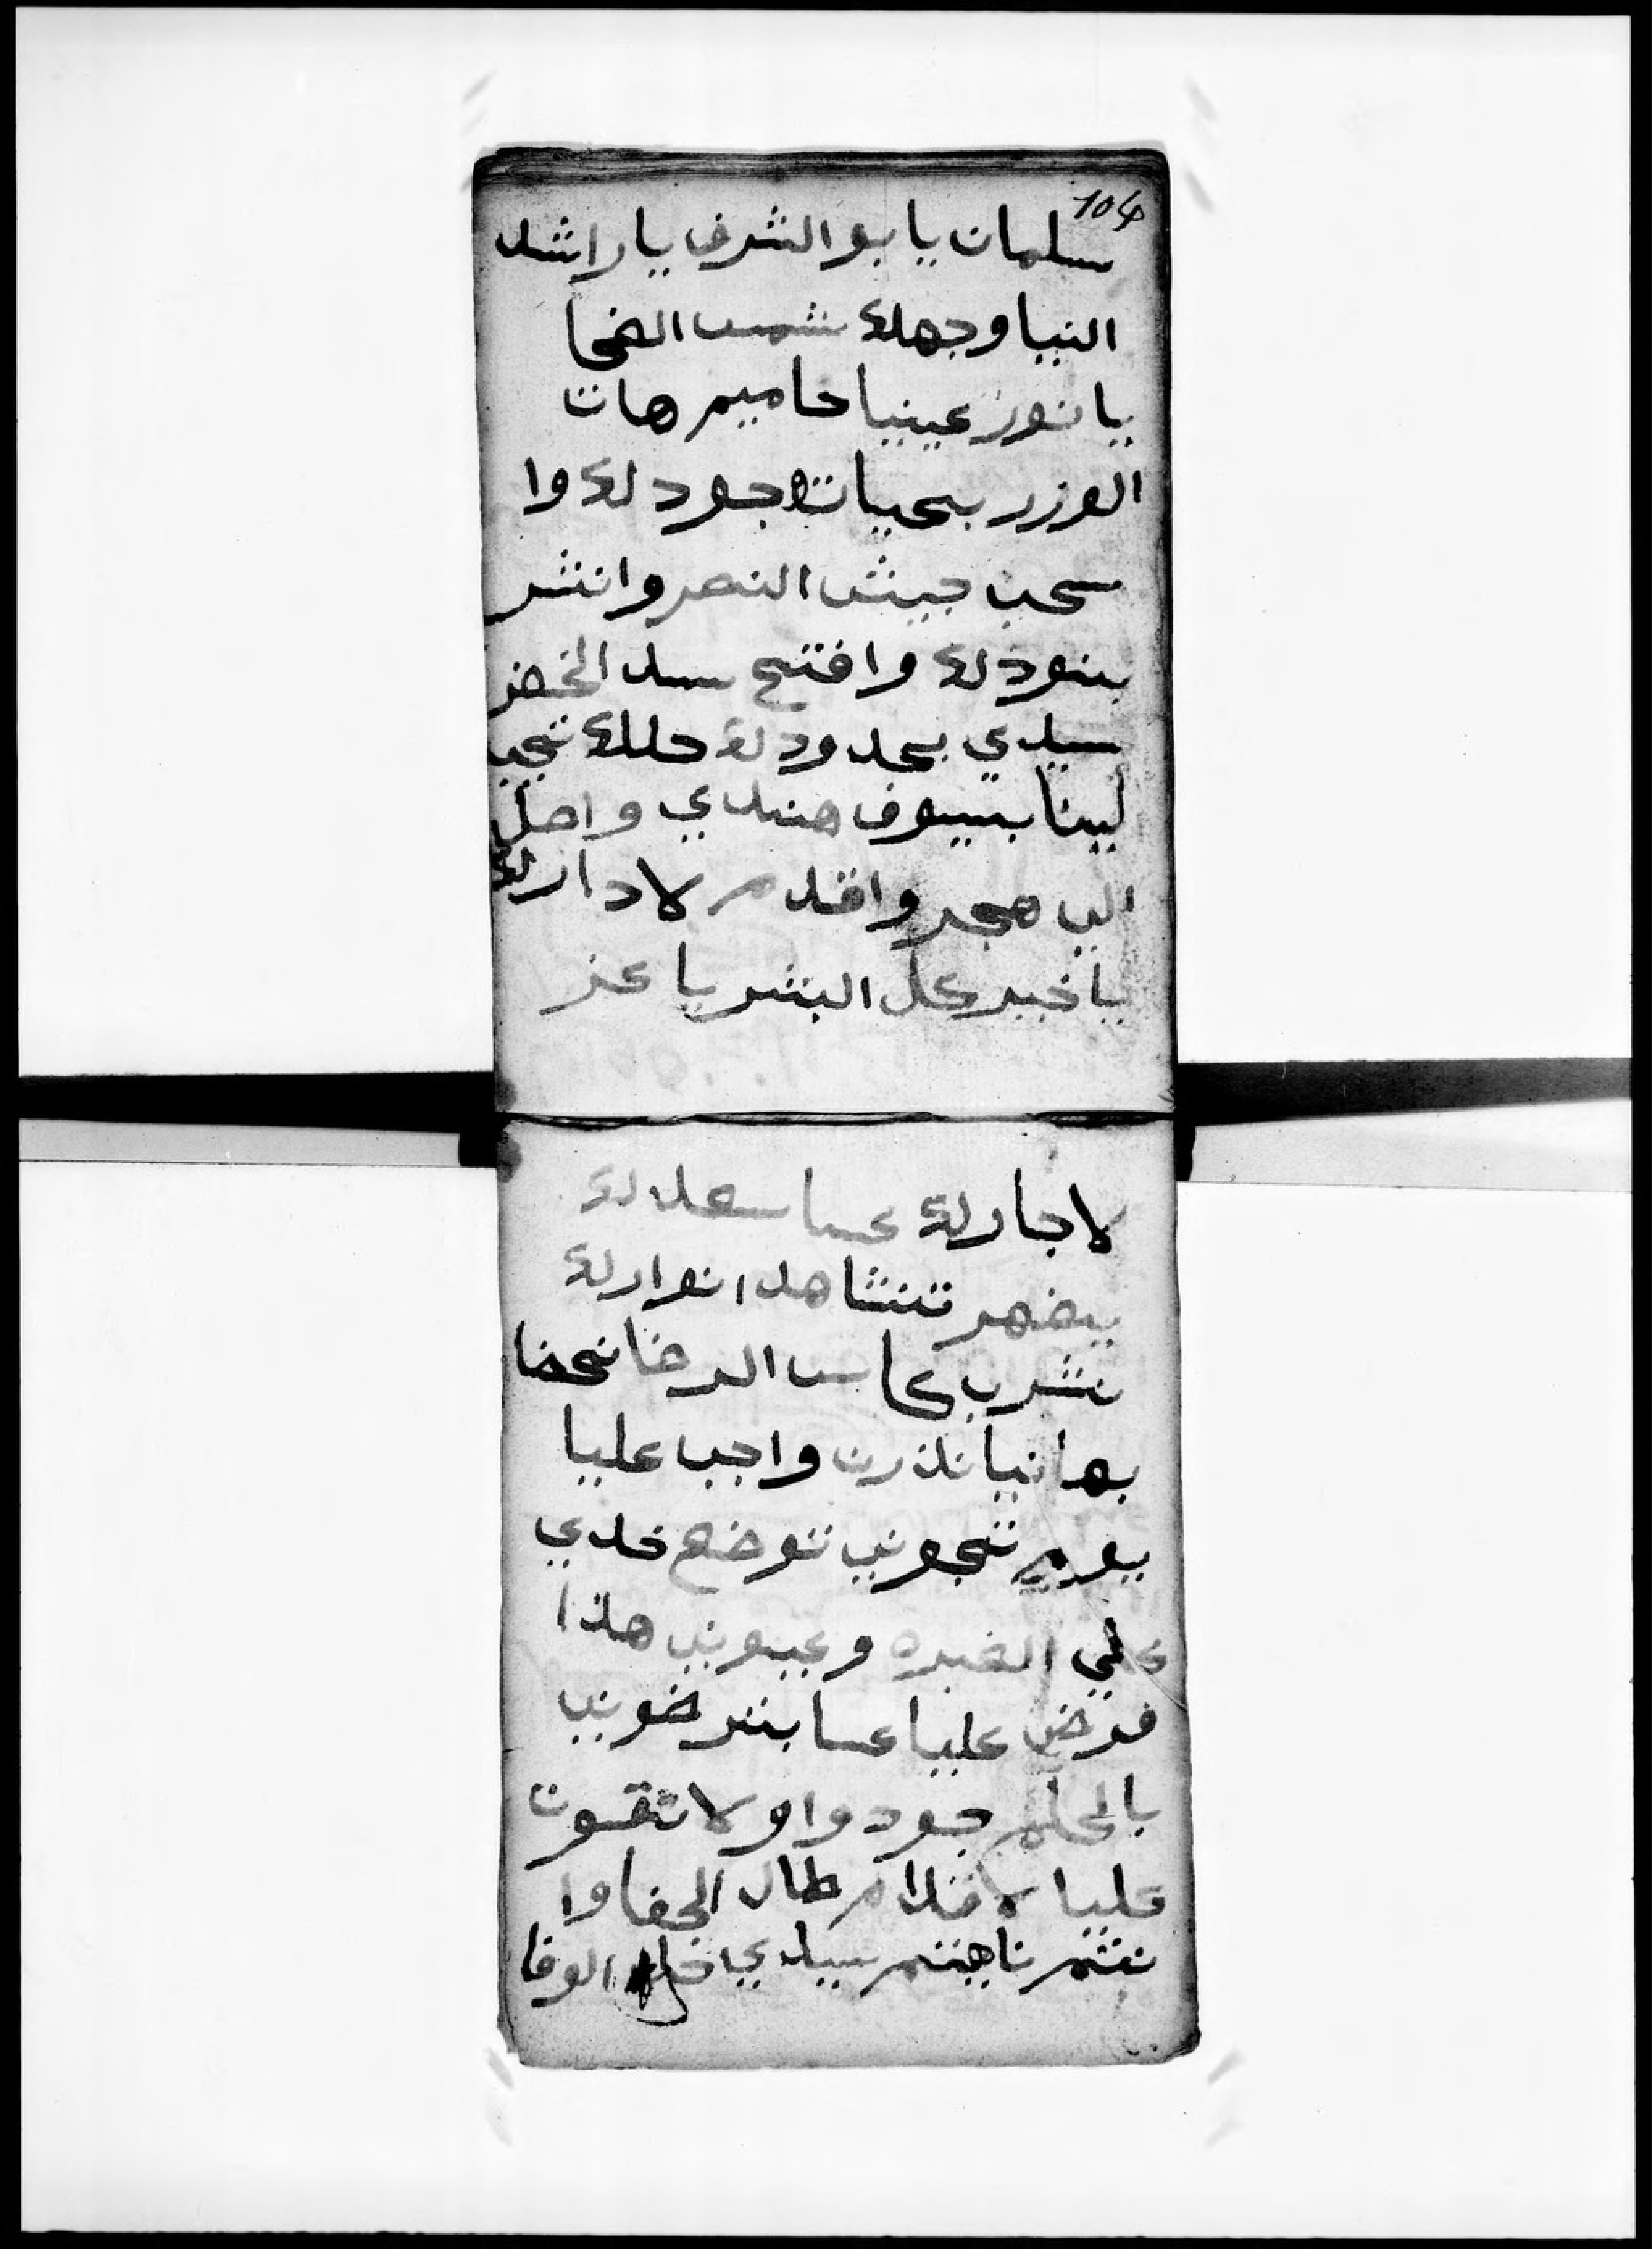 104
سلمان يا بو الشرف يا راشد
النبيا وجهك شمس الضحا
يا نور عينيا حاميم هات
الوزر بحياة جودك وا
سحب جيش النصر وانشر
بنودك وافتح سد الخضر
سيدي بحدودك حلك تجي
لينا بسيوف هندي واصل
الي هجر واقدم لا دارك
يا خير كل البشر يا عز
لا جارك عسا سعدك
يضهر تنشاهد انوارك
نشرب كاس الرضا نحضا
بهانيا نذرن واجب عليا
يوم تجوني نوضع خدي
علي الغبره وعيوني هذا
فرض عليا عسا بترضوني
بالحلم جودوا ولا تقسون
عليا لا قدام طال الجفا وا
نتم ناهيتم سيدي الوفا